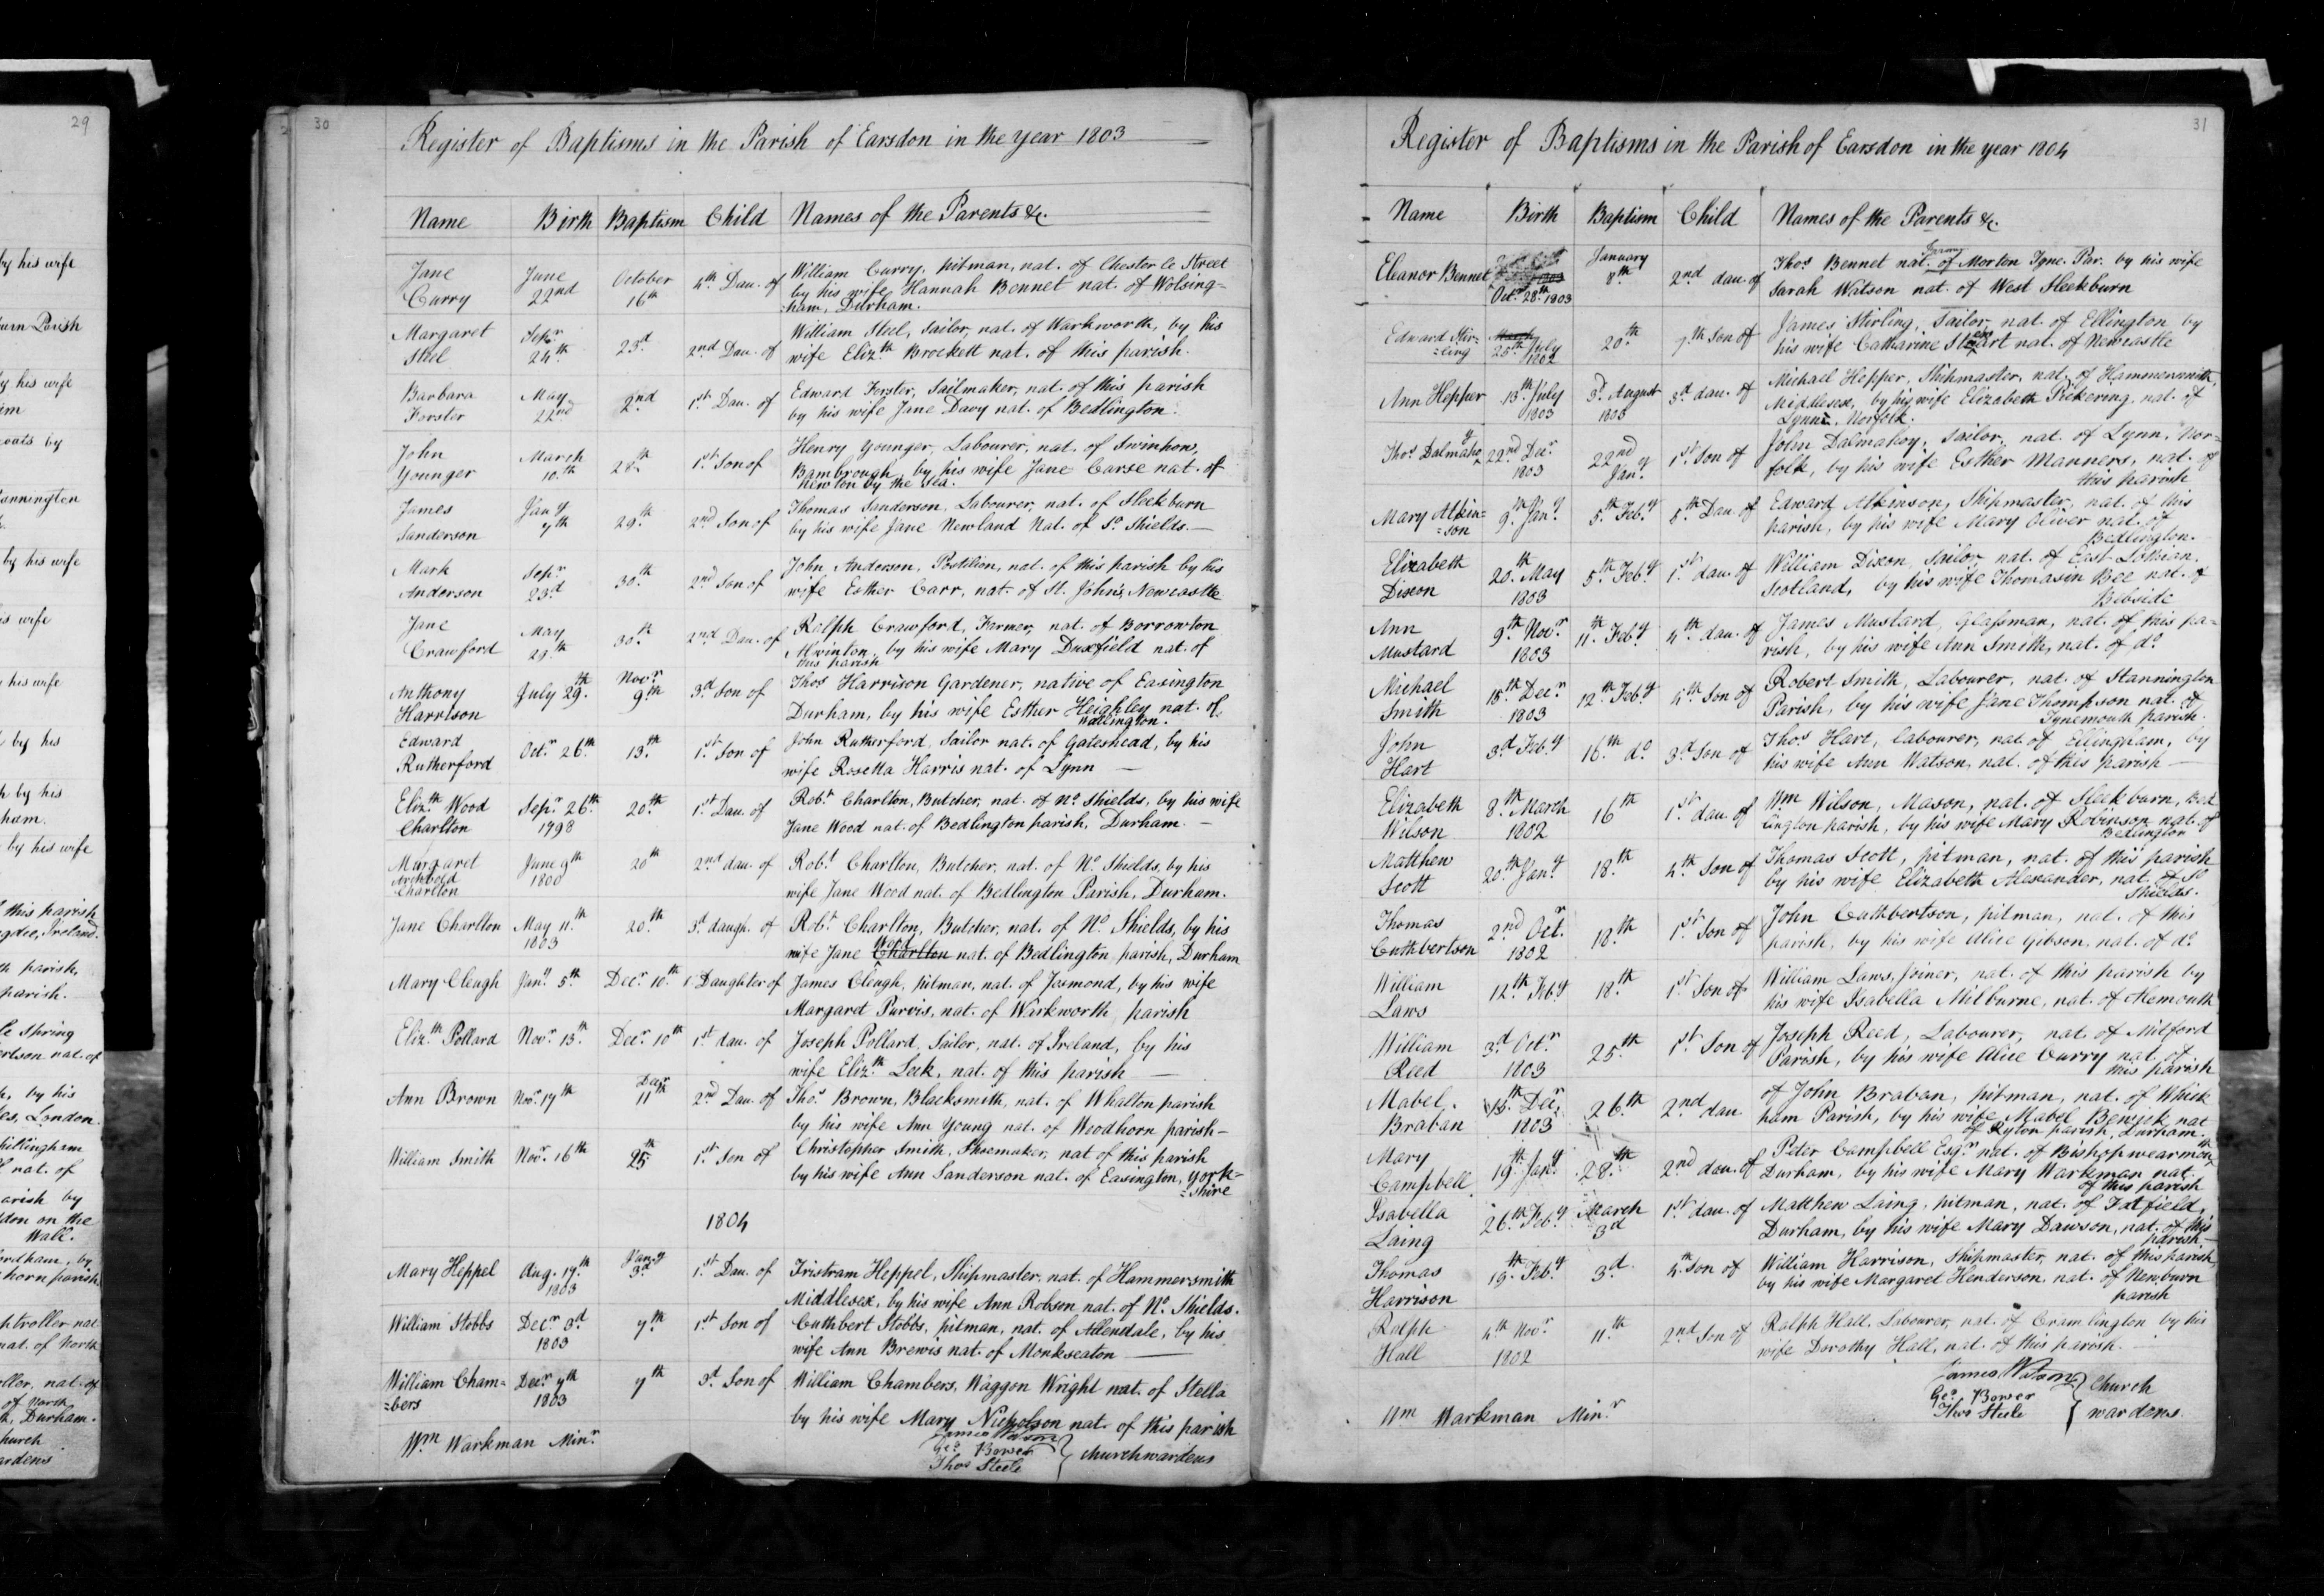 29
by his wife
urn Parish
by his wife
am
coats by
tannington
by his wife
is wife
his wife
by his
h by his
ham.
by his wife
this parish
gdee, Ireland.
th parish,
parish.
le Spring
ertson nat. of
h, by his
es, London.
hillingham
nat. of
arish by
don on the
Wall.
ordham, by
thorn parish
ptroller nat
nat. of North
oller, nat. of
of North
h, Durham.
hurch
ardens
30
Register of Baptisms in the Parish of Earsdon in the year 1803
Name Birth Baptism Child Names of the Parents &c.
Jane June October 4th Dau. of William Curry, pitman, nat. of Chester le Street
Curry 22nd 16th by his wife Hannah Bennet nat. of Wolsing-
ham, Durham.
Margaret Sepr 23d 2nd Dau. of William Steel, Sailor, nat. of Warkworth, by his
Steel 24th wife Elizth Brockett nat. of this parish.
Barbara May 2nd 1st Dau. of Edward Forster, Sailmaker, nat. of this parish
Forster 22nd by his wife Jane Davy nat. of Bedlington.
John March 28th 1st Son of Henry Younger, Labourer, nat. of Swinhow,
Younger 10th Bambrough, by his wife Jane Carse nat. of
Newton by the Sea.
James Jany 29th 2nd Son of Thomas Sanderson, Labourer, nat. of Sleekburn
Sanderson 7th by his wife Jane Newland Nat. of So Shields.—
Mark Sepr 30th 2nd Son of John Anderson, Postilion, nat. of this parish by his
Anderson 23d wife Esther Carr, nat. of St. John's, Newcastle
Jane May 30th 2nd Dau. of Ralph Crawford, Farmer, nat. of Borrowton
Crawford 29th Alwinton, by his wife Mary Duxfield nat. of
this parish
Anthony July 29th Novr 9th 3d Son of Thos Harrison Gardener, native of Easington
Harrison Durham, by his wife Esther Heighley nat. of
Wallington.
Edward Octr 26th 13th 1st Son of John Rutherford, Sailor nat. of Gateshead, by his
Rutherford wife Rosetta Harris nat. of Lynn —
Elizth Wood Sepr 26th 20th 1st Dau. of Robt Charlton, Butcher, nat. of No Shields, by his wife
Charlton 1798 Jane Wood nat. of Bedlington parish, Durham.—
Margaret June 9th 20th 2nd dau. of Robt Charlton, Butcher, nat. of No Shields, by his
Archbold 1800
Charlton wife Jane Wood nat. of Bedlington Parish, Durham.
Jane Charlton May 11th 20th 3d daugh. of Robt Charlton, Butcher, nat. of No Shields, by his
1803 wife Jane Wood Charlton nat. of Bedlington parish, Durham
Mary Cleugh Jany 5th Decr 10th Daughter of James Cleugh, pitman, nat. of Jesmond, by his wife
Margaret Purvis, nat. of Warkworth parish
Elizth Pollard Novr 13th Decr 10th 1st dau. of Joseph Pollard, Sailor, nat. of Ireland, by his
wife Elizth Leck, nat. of this parish —
Ann Brown Novr 17th Decr 11th 2nd Dau. of Thos Brown, Blacksmith, nat. of Whalton parish
by his wife Ann Young nat. of Woodhorn parish—
William Smith Novr 16th 25th 1st Son of Christopher Smith, Shoemaker, nat of this parish
by his wife Ann Sanderson nat. of Easington, York-
=shire
1804
Mary Heppel Aug. 17th Jany 3d 1st Dau. of Tristram Heppel, Shipmaster, nat. of Hammersmith
1803 Middlesex, by his wife Ann Robson nat. of No Shields.
William Stobbs Decr 3d 7th 1st Son of Cuthbert Stobbs, pitman, nat. of Allendale, by his
1803 wife Ann Brewis nat. of Monkseaton —
William Cham- Decr 7th 7th 3d Son of William Chambers, Waggon Wright nat. of Stella
=bers 1803 by his wife Mary Nicholson nat. of this parish
Wm Warkman Minr. James Watson
Geo Bower Churchwardens
Thos Steele
31
Register of Baptisms in the Parish of Earsdon in the year 1804
Name Birth Baptism Child Names of the Parents &c.
Eleanor Bennet Octr 28th 1803 January 8th 2nd dau. of Thos Bennet nat. of Morton Tyne. Par. by his wife
Sarah Watson nat. of West Sleekburn
Edward Stir- 25th July 20th 7th Son of James Stirling, Sailor, nat. of Ellington by
=ling 1802 his wife Catharine nat. of Newcastle
Ann Hepper 13th July 3d August 3d dau. of Michael Hepper, Shipmaster, nat. of Hammersmith,
1803 1803 Middlesex, by his wife Elizabeth Pickering, nat. of
Lynn, Norfolk.
Thos Dalmahoy 22nd Decr 22nd 1st Son of John Dalmahoy, Sailor, nat. of Lynn, Nor-
1803 Jany folk, by his wife Esther Manners, nat. of
this parish
Mary Atkin= 9th Jany 5th Feby 5th Dau. of Edward Atkinson, Shipmaster, nat. of this
=son parish, by his wife Mary Oliver nat. of
Bedlington.
Elizabeth 20th May 5th Feby 1st dau. of William Dixon, Sailor, nat. of East Lothian.
Dixon 1803 Scotland, by his wife Thomasin Bee nat. of
Bebside
Ann 9th Novr 11th Feby 4th dau. of James Mustard, Glassman, nat. of this pa=
Mustard 1803 rish, by his wife Ann Smith, nat. of do
Michael 18th Decr 12th Feby 4th Son of Robert Smith, Labourer, nat. of Stannington
Smith 1803 Parish, by his wife Jane Thompson nat. of
Tynemouth parish.
John 3d Feby 16th do 3d Son of Thos Hart, labourer, nat. of Ellingham, by
Hart his wife Ann Watson, nat. of this parish —
Elizabeth 8th March 16th 1st dau. of Wm Wilson, Mason, nat. of Sleekburn, Bed
Wilson 1802 lington parish, by his wife Mary Robinson nat. of
Bedlington
Matthew 20th Jany 18th 4th Son of Thomas Scott, pitman, nat. of this parish
Scott by his wife Elizabeth Alexander, nat. of So
Shields.
Thomas 2nd Octr 18th 1st Son of John Cuthbertson, pitman, nat. of this
Cuthbertson 1802 parish, by his wife Alice Gibson, nat. of do
William 12th Feby 18th 1st Son of William Laws, Joiner, nat. of this parish by
Laws his wife Isabella Milburne, nat. of Alemouth
William 3d Octr 25th 1st Son of Joseph Reed, Labourer, nat. of Mitford
Reed 1803 Parish, by his wife Alice Curry nat. of
this parish
Mabel Decr 26th 2nd dau of John Braban, pitman, nat. of Whick
Braban 1803 ham Parish, by his wife Mabel Bewick nat
of Ryton parish, Durham.
Mary 19th Jany 28th 2nd dau. of Peter Campbell Esqr nat. of Bishopwearmouth
Campbell Durham, by his wife Mary Warkman nat.
of this parish
Isabella 26th Feby March 1st dau. of Matthew Laing, pitman, nat. of Fatfield,
Laing 3d Durham, by his wife Mary Dawson, nat. of this
parish—
Thomas 19th Feby 3d 4th Son of William Harrison, Shipmaster, nat. of this parish,
Harrison by his wife Margaret Henderson, nat. of Newburn
parish
Ralph 4th Novr 11th 2nd Son of Ralph Hall, Labourer, nat. of Cramlington by his
Hall 1802 wife Dorothy Hall, nat. of this parish. —
James Watson Church
Wm Warkman Minr Geo Bower
Thos Steele wardens